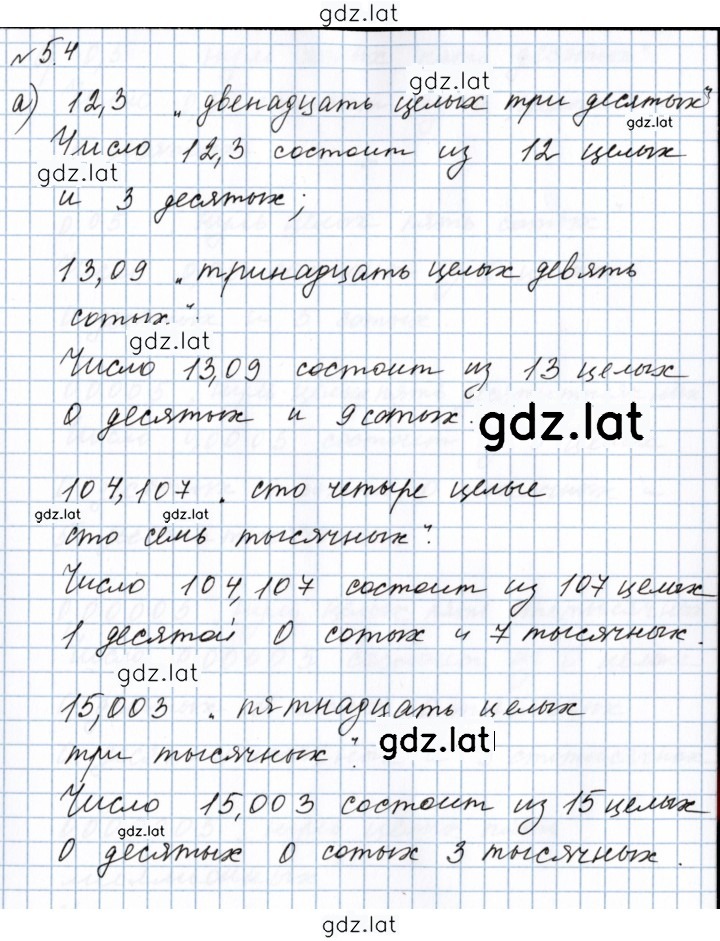 gdz.lat
№5.4
gdz.lat
а) 12,3 „двенадцать целых три десятых"
gdz.lat
Число 12,3 состоит из 12 целых
gdz.lat
и 3 десятых;
13,09 „тринадцать целых девять
сотых.".
gdz.lat
Число 13,09 состоит из 13 целых
0 десятых и 9 сотых.
gdz.lat
104,107 „сто четыре целые
gdz.lat gdz.lat
сто семь тысячных".
Число 104,107 состоит из 107 целых
1 десятой 0 сотых и 7 тысячных.
gdz.lat
15,003 „пятнадцать целых
три тысячных".
gdz.lat
Число 15,003 состоит из 15 целых
gdz.lat
0 десятых 0 сотых 3 тысячных.
gdz.lat